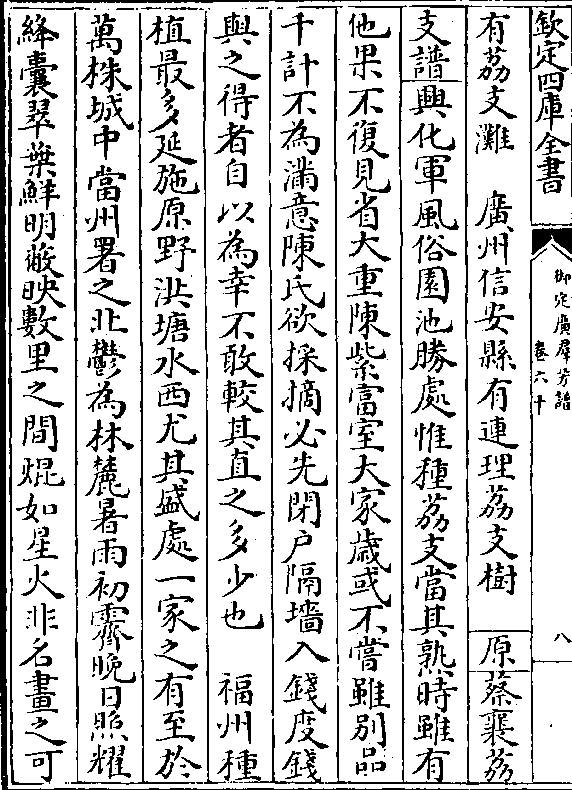 欽定四庫全書
御定廣羣芳譜
卷六十
八
有荔支灘　廣州信安縣有連理荔支樹　原蔡襄荔
支譜興化軍風俗園池勝處惟種荔支當其熟時雖有
他果不復見省大重陳紫富室大家歲或不嘗雖別品
千計不為滿意陳氏欲採摘必先閉户隔墻入錢度錢
與之得者自以為幸不敢較其直之多少也　福州種
植最多延施原野洪塘水西尤其盛處一家之有至於
萬株城中當州署之北鬱為林麓暑雨初霽晚日照耀
絳囊翠葉鮮明蔽映數里之間焜如星火非名畫之可